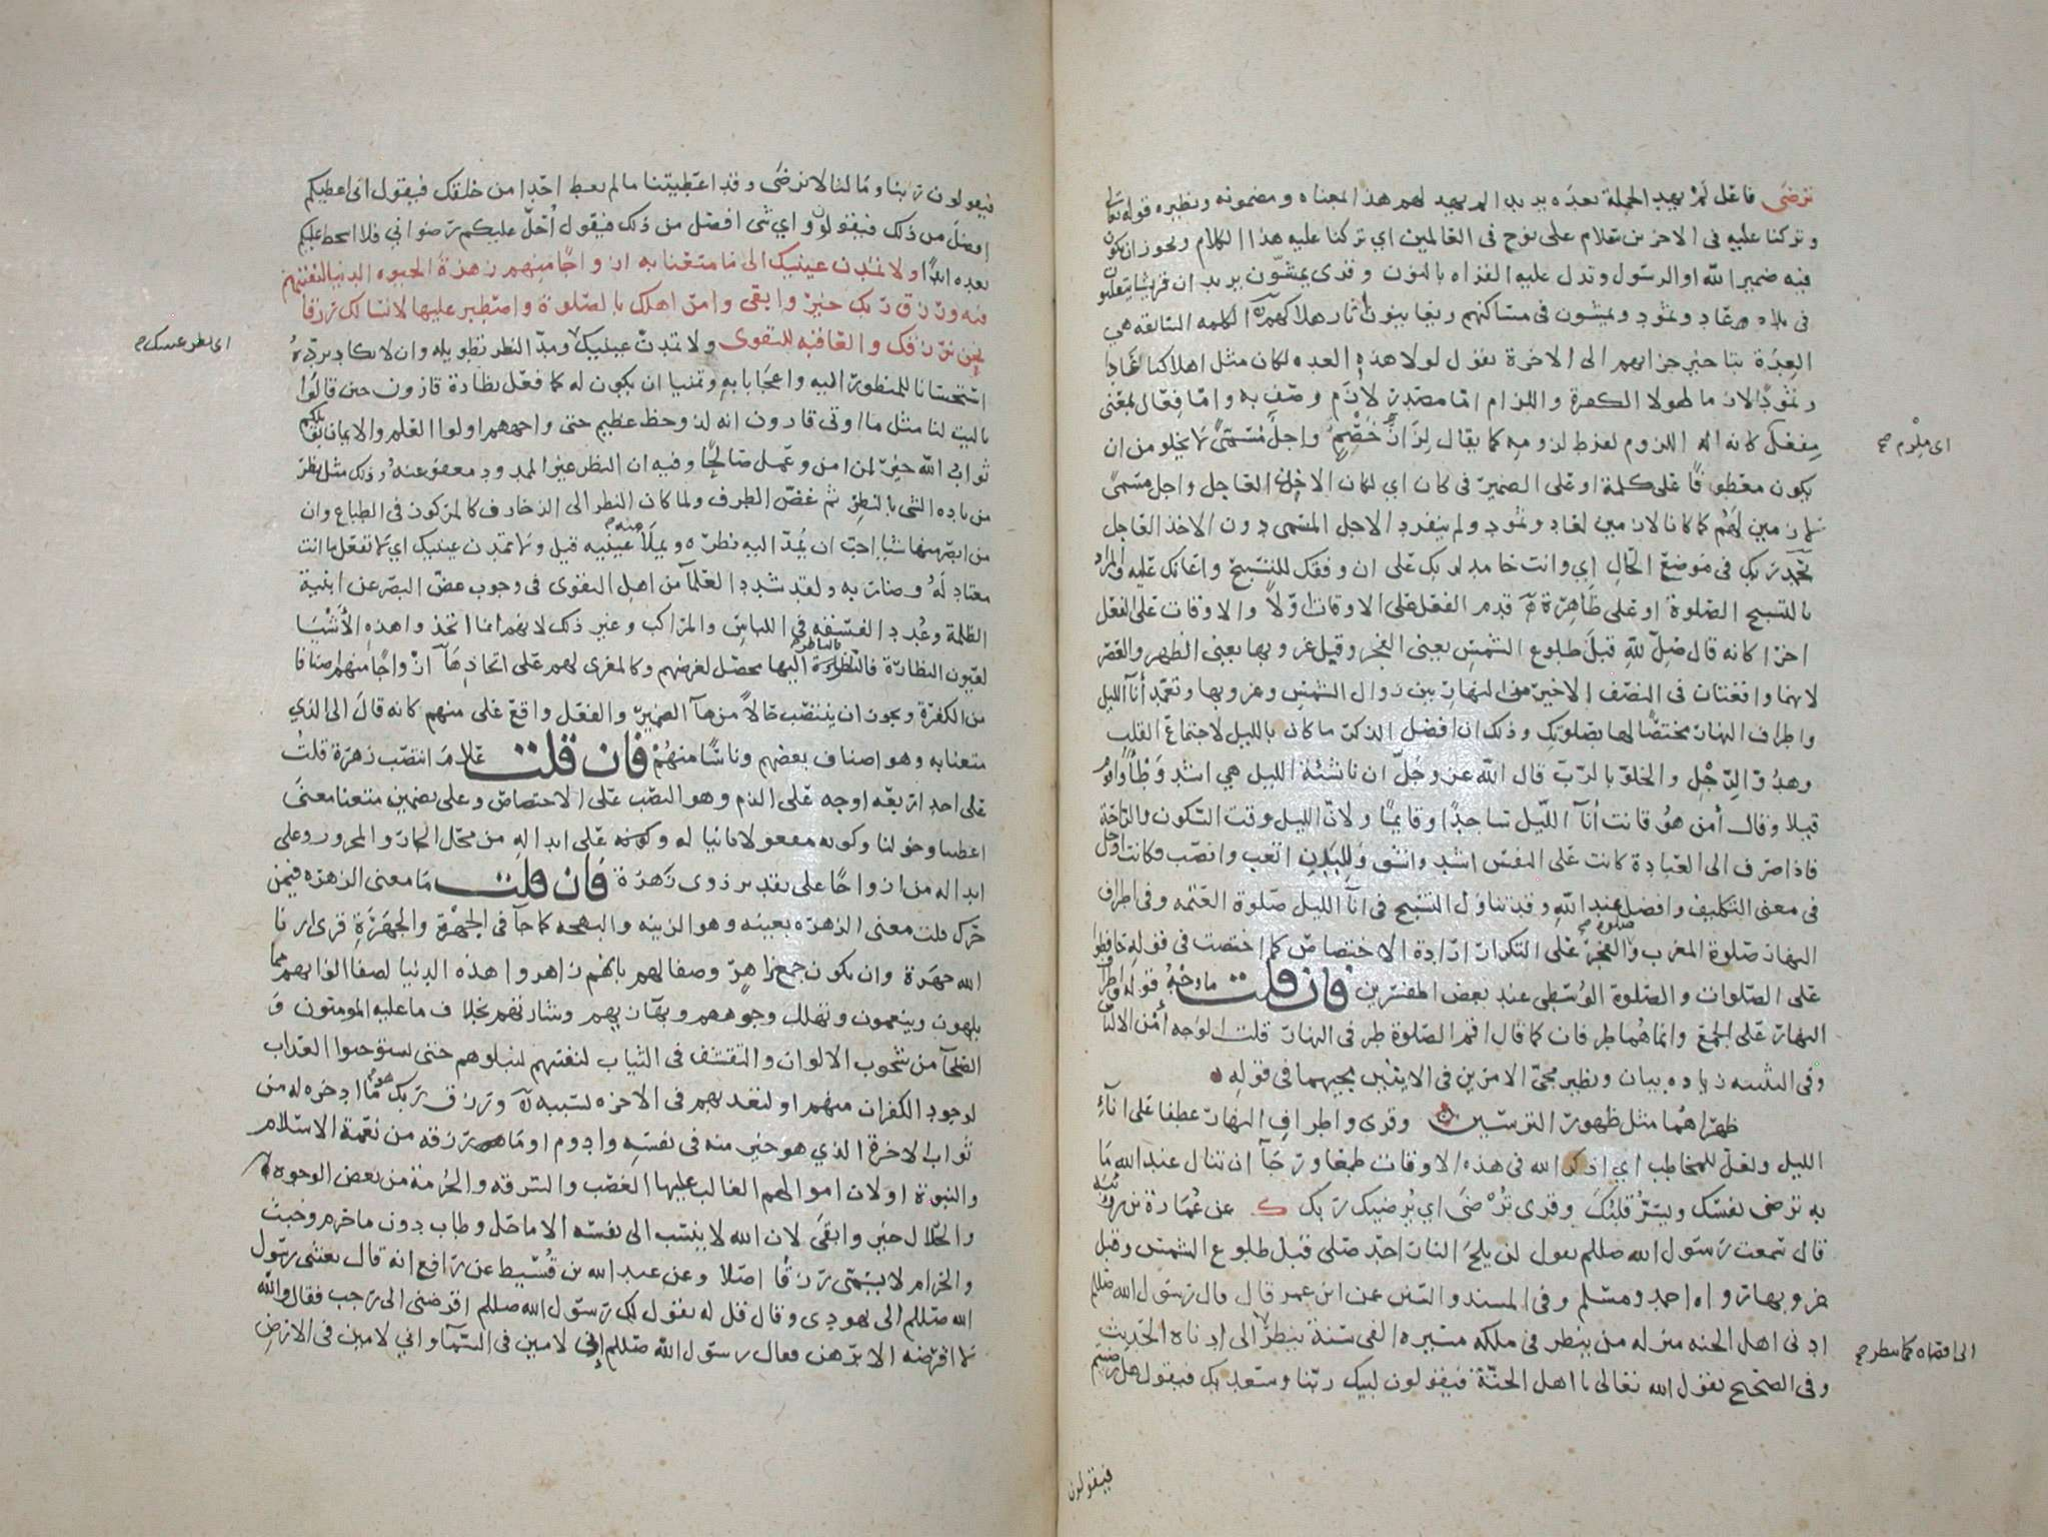 ترضى فاعل لم يهد الجملة بعده يريد الم يهد لهم هذا بمعناه ومضمونه ونظيره قوله تعالى
وتركنا عليه في الاخرين سلام على نوح في العالمين اي تركنا عليه هذا الكلام ويجوز ان يكون
فيه ضمير الله او الرسول وتدل عليه القراه بالنون وقرى يمشون يريد ان قريشا يتقلبون
في بلاد عاد وثمود ويمشون في مساكنهم ويعاينون اثار هلاكهم الكلمه السابقه هي
العدة بتاخير جزائهم الى الاخرة يقول لولا هذه العده لكان مثل اهلاكنا عادا
وثمودا لازما لهولا الكفرة واللزام اما مصدر لازم وصف به واما فعال بمعنى
مفعل كانه اله اللزوم لفرط لزومه كما يقال لزاز خصم واجل مسمى لا يخلو من ان
اى ملزم صح
يكون معطوفا على كلمة او على الضمير في كان اي لكان الاخذ العاجل واجل مسمى
لازمين لهم كما كانا لازمين لعاد وثمود ولم ينفرد الاجل المسمى دون الاخذ العاجل
بحمد ربك في موضع الحال اي وانت حامد لربك على ان وفقك للتسبيح واعانك عليه والمراد
بالتسبيح الصلوة او على ظاهرة قدم الفعل على الاوقات اولا والاوقات على الفعل
اخرا كانه قال صل لله قبل طلوع الشمس يعني الفجر وقبل غروبها يعني الظهر والعصر
لانهما واقعتان في النصف الاخير من النهار بين زوال الشمس وغروبها وتعمد أنآ الليل
واطراف النهار مختصا لها بصلوتك وذلك ان افضل الذكر ما كان بالليل لاجتماع القلب
وهدو الرجل والخلو بالرب قال الله عز وجل ان ناشئة الليل هي اشد وطأ واقوم
قيلا وقال أمن هو قانت أنآ الليل ساجدا وقايما ولان الليل وقت السكون والراحة
فاذا صرف الى العبادة كانت على النفس اشد واشق وللبدن اتعب وانصب فكانت ادخل
في معنى التكليف وافضل عند الله وقد تناول التسبيح في انآ الليل صلوة العتمه وفي اطراف
النهار صلوة المغرب وصلوة الفجر على التكرار ارادة الاختصاص كما اختصت في قوله حافظوا
على الصلوات والصلوة الوسطى عند بعض المفسرين فان قلت ما وجه قوله واطراف
النهار على الجمع وانما هما طرفان كما قال اقم الصلوة طرفي النهار قلت الوجه أمن الالباس
وفي التثنيه زياده بيان ونظير مجئ الامرين في الايتين مجيهما في قوله
ظهراهما مثل ظهور الترسين وقرى واطراف النهار عطفا على انآء
الليل ولعل للمخاطب اي اذكر الله في هذه الاوقات طمعا ورجآ ان تنال عند الله ما
به ترضى نفسك ويسر قلبك وقرى ترضى اي يرضيك ربك ك عن عمارة بن رويبة
قال سمعت رسول الله صللم يقول لن يلج النار احد صلى قبل طلوع الشمس وقبل
غروبها رواه احمد ومسلم وفي المسند والسنن عن ابن عمر قال قال رسول الله صللم
ادنى اهل الجنه منزله من ينظر في ملكه مسيره الفي سنة ينظر الى ادناه الحديث
الى اقصاه كما ينظر صح
وفي الصحيح يقول الله تعالى يا اهل الجنة فيقولون لبيك ربنا وسعديك فيقول هل رضيتم
فيقولون
فيقولون ربنا وما لنا لا نرضى وقد اعطيتنا ما لم يعط احدا من خلقك فيقول اني اعطيكم
افضل من ذلك فيقولون واي شي افضل من ذلك فيقول أحل عليكم رضواني فلا اسخط عليكم
بعده ابدا ولا تمدن عينيك الى ما متعنا به ازواجا منهم زهرة الحيوه الدنيا لنفتنهم
فيه ورزق ربك خير وابقى وامر اهلك بالصلوة واصطبر عليها لا نسالك رزقا
نحن نرزقك والعاقبه للتقوى ولا تمدن عينيك ومد النظر تطويله وان لا يكاد يرده
اى نظر عينيك صح
استحسانا للمنظور اليه واعجابا به وتمنيا ان يكون له كما فعل نظارة قارون حين قالوا
ياليت لنا مثل ما اوتي قارون انه لذو حظ عظيم حتى واجههم اولوا العلم والايمان بويلكم
ثواب الله خير لمن امن وعمل صالحا وفيه ان النظر غير الممدود معفو عنه وذلك مثل نظر
من باده الشى بالنظر ثم غض الطرف ولما كان النظر الى الزخارف كالمركوز في الطباع وان
من ابصر منها شيا احب ان يمد اليه نظره ويملا منه عينيه قيل ولا تمدن عينيك اي لا تفعل ما انت
معتاد له وضار به ولقد شدد العلمآ من اهل التقوى في وجوب غض البصر عن ابنية
الظلمة وعدد الفسقه في اللباس والمراكب وغير ذلك لانهم انما اتخذوا هذه الأشيا
لعيون النظارة فالناظر اليها محصل لغرضهم وكالمغرى لهم على اتخاذها ازواجا منهم اصنافا
من الكفرة ويجوز ان ينتصب حالا من هآ الضمير والفعل واقع على منهم كانه قال الى الذي
متعنا به وهو اصناف بعضهم وناسا منهم فان قلت علام انتصب زهرة قلت
على احد اربعه اوجه على الذم وهو النصب على الاختصاص وعلى تضمين متعنا معنى
اعطينا وخولنا وكونه مفعولا ثانيا له وكونه على ابداله من محل الجار والمجرور وعلى
ابداله من ازواجا على تقدير ذوى زهرة فان قلت ما معنى الزهره فيمن
حرك قلت معنى الزهره بعينه وهو الزينه والبهجه كما جآ في الجهرة والجهرة قرى ارنا
الله جهرة وان يكون جمع زاهر وصفا لهم بانهم زاهروا هذه الدنيا لصفا الوانهم مما
يلهون وينعمون وتهلل وجوههم وبهآ زيهم وشارتهم بخلاف ما عليه المومنون و
الصلحآ من شحوب الالوان والتقشف في الثياب لنفتنهم لنبلوهم حتى يستوجبوا العذاب
لوجود الكفران منهم او لنعذبهم في الاخره بسببه ورزق ربك هو ما ادخره له من
ثواب الاخرة الذي هو خير منه في نفسه وادوم او ما رزقه من نعمة الاسلام
والنبوة او لان اموالهم الغالب عليها الغصب والسرقه والحرمة من بعض الوجوه
والحلال خير وابقى لان الله لا ينسب الى نفسه الا ما حل وطاب دون ما حرم وخبث
والحرام لا يسمى رزقا اصلا وعن عبد الله بن قسيط عن رافع انه قال بعثني رسول
الله صللم الى يهودى وقال قل له يقول لك رسول الله صللم اقرضني الى رجب فقال والله
لا اقرضه الا برهن فقال رسول الله صللم اني لامين في السمآ واني لامين في الارض